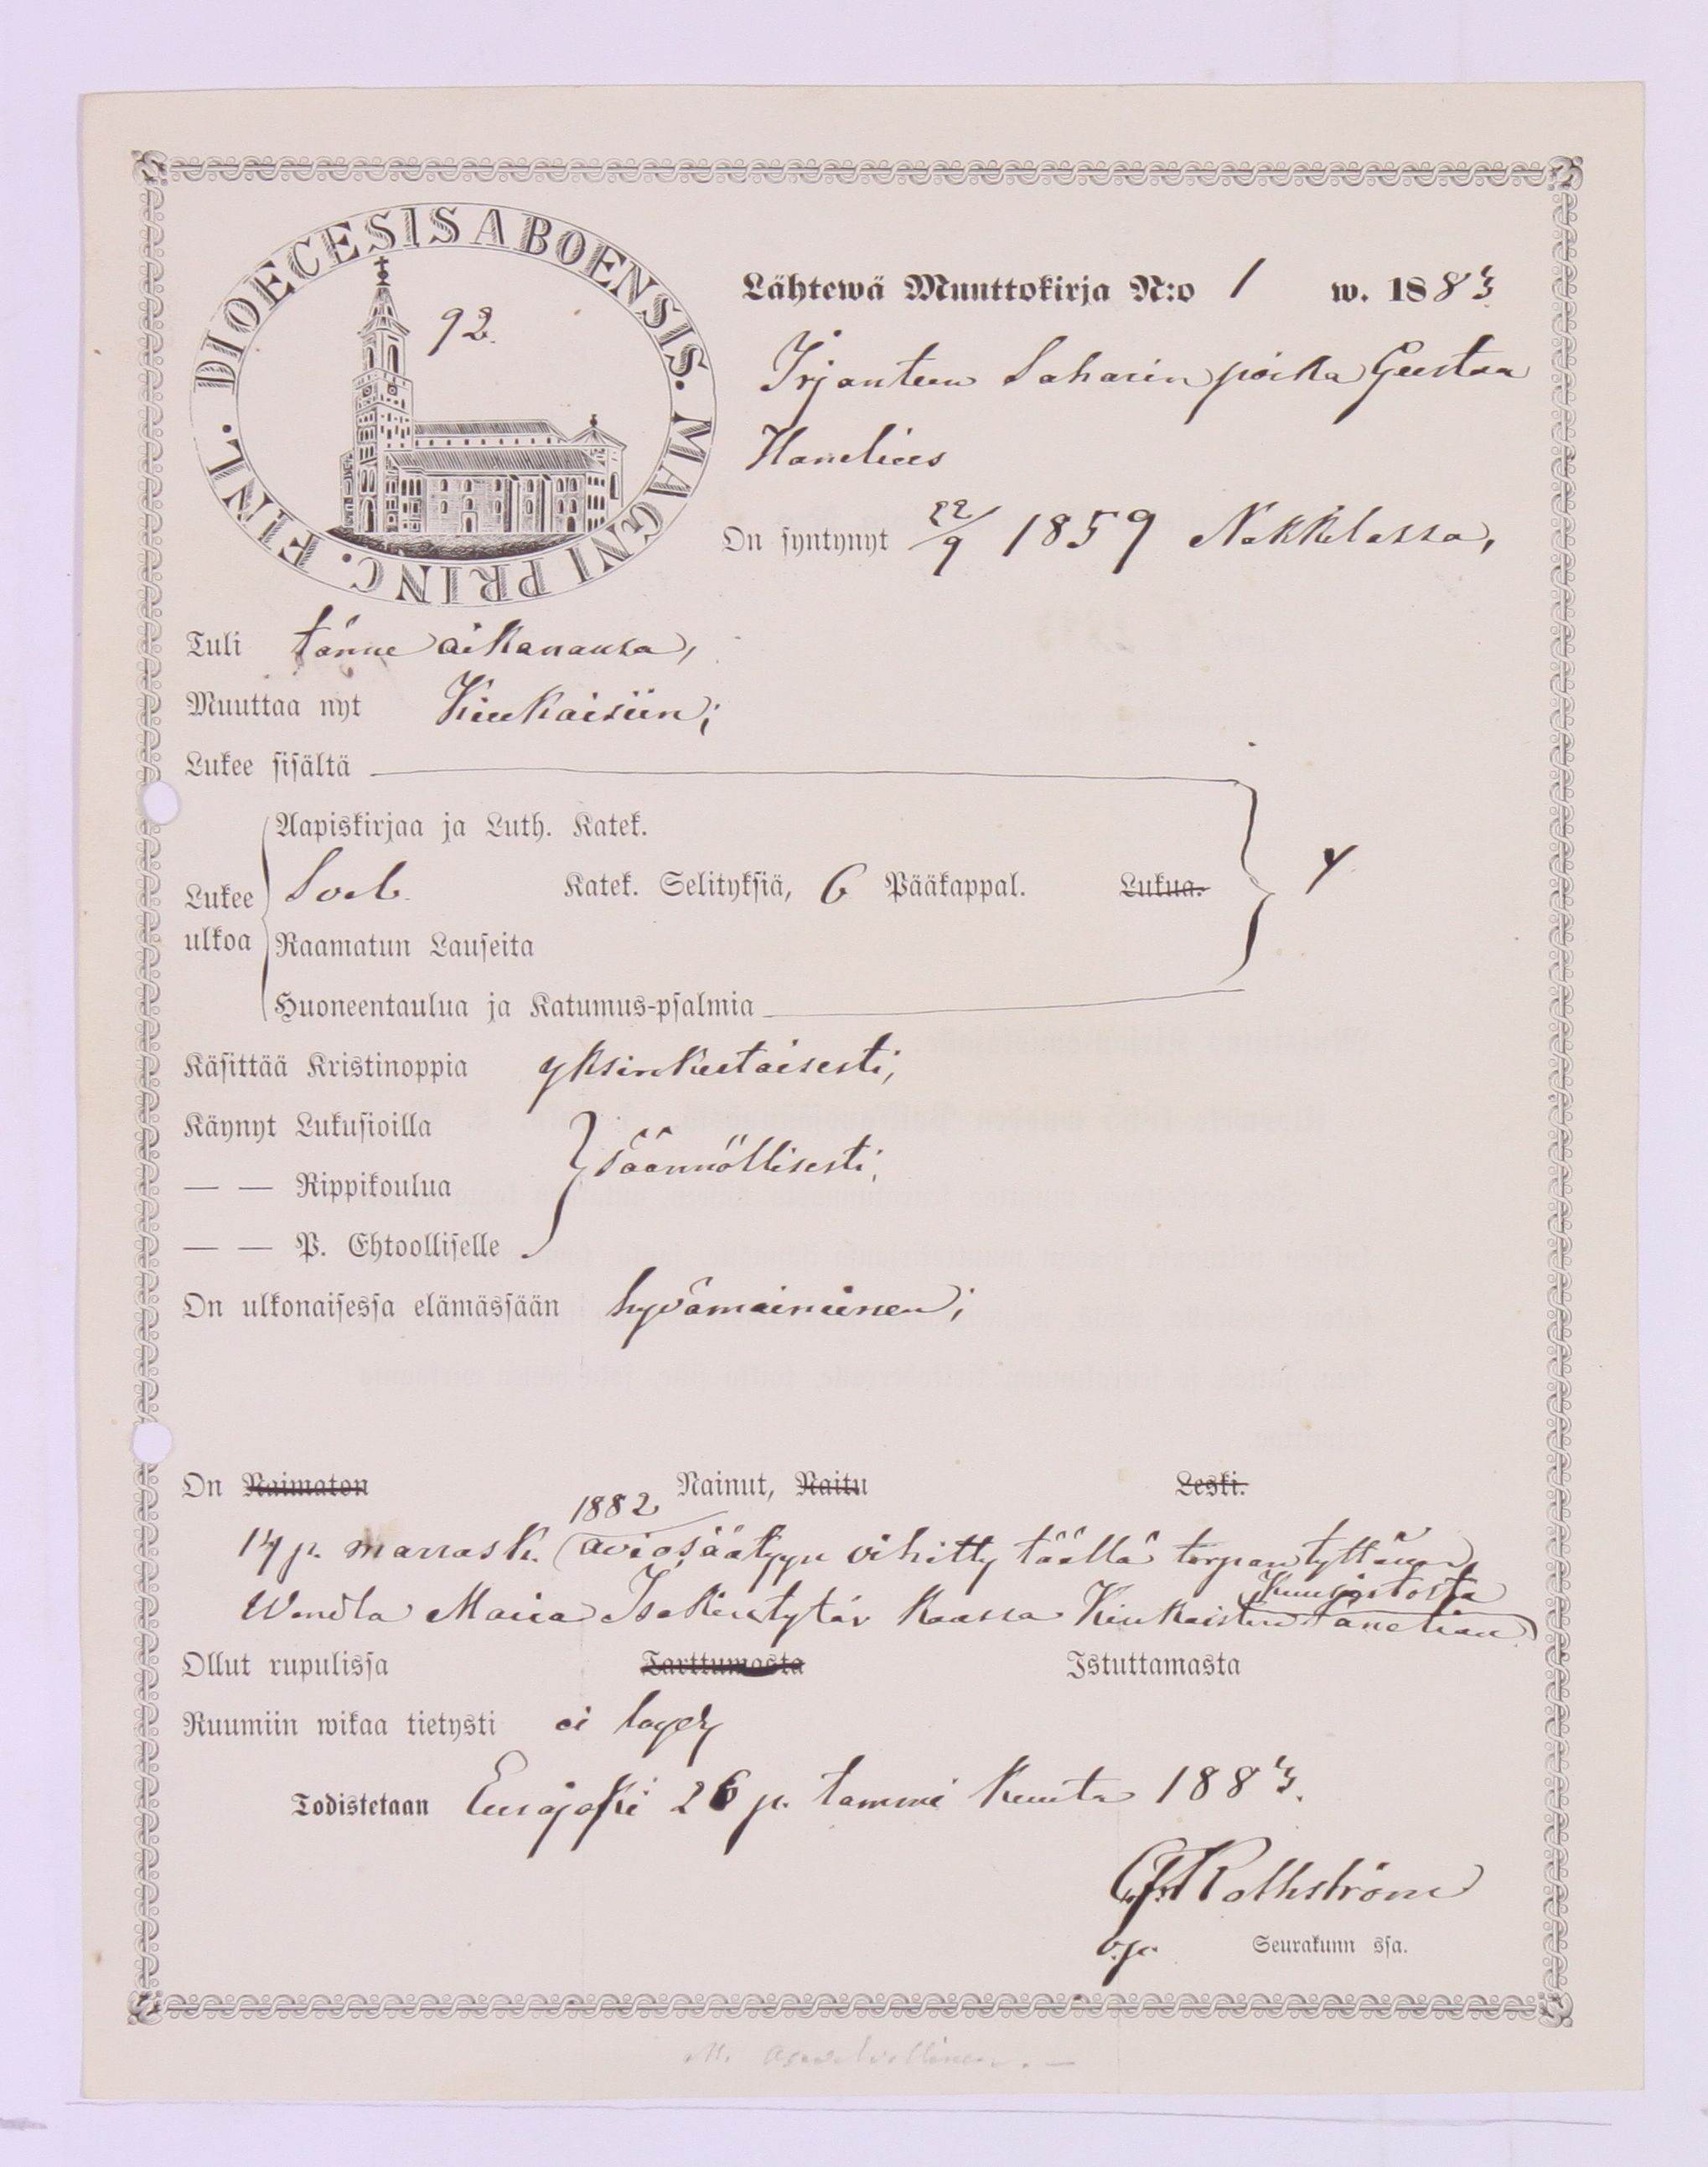 DIOECESIS ABOENSIS. MAGNI PRINC. FINL.
92.
Lähtewä Muuttokirja N:o 1 w. 1883
Irjanteen Saharin poika Gustaa
Hanelius
On syntynyt 22/9 1859 Nakkilassa,
Tuli tänne aikanansa,
Muuttaa nyt Kiukaisiin;
Lukee sisältä
Aapiskirjaa ja Luth. Katek.
Lukee ulkoa Katek. Selityksiä, 6 Pääkappal. Lukua.
Raamatun Lauseita
Huoneentaulua ja Katumus-psalmia
Käsittää Kristinoppia yksinkertaisesti,
Käynyt Lukusioilla
— — Rippikoulua säännöllisesti;
— — P. Ehtoolliselle
On ulkonaisessa elämässään hyvämaininen;
On Naimaton Nainut, Naitu Leski.
1882
17 p. marrask. aviosäätyyn vihitty täällä torpan tyttären
Wendla Maria Isakintytär kanssa Kiukaisten
Ollut rupulissa Tarttumasta Istuttamasta
Ruumiin wikaa tietysti ei löydy
Todistetaan Eurajoki 26 p. tammi kuuta 1883.
Rothström
Seurakunn ssa.